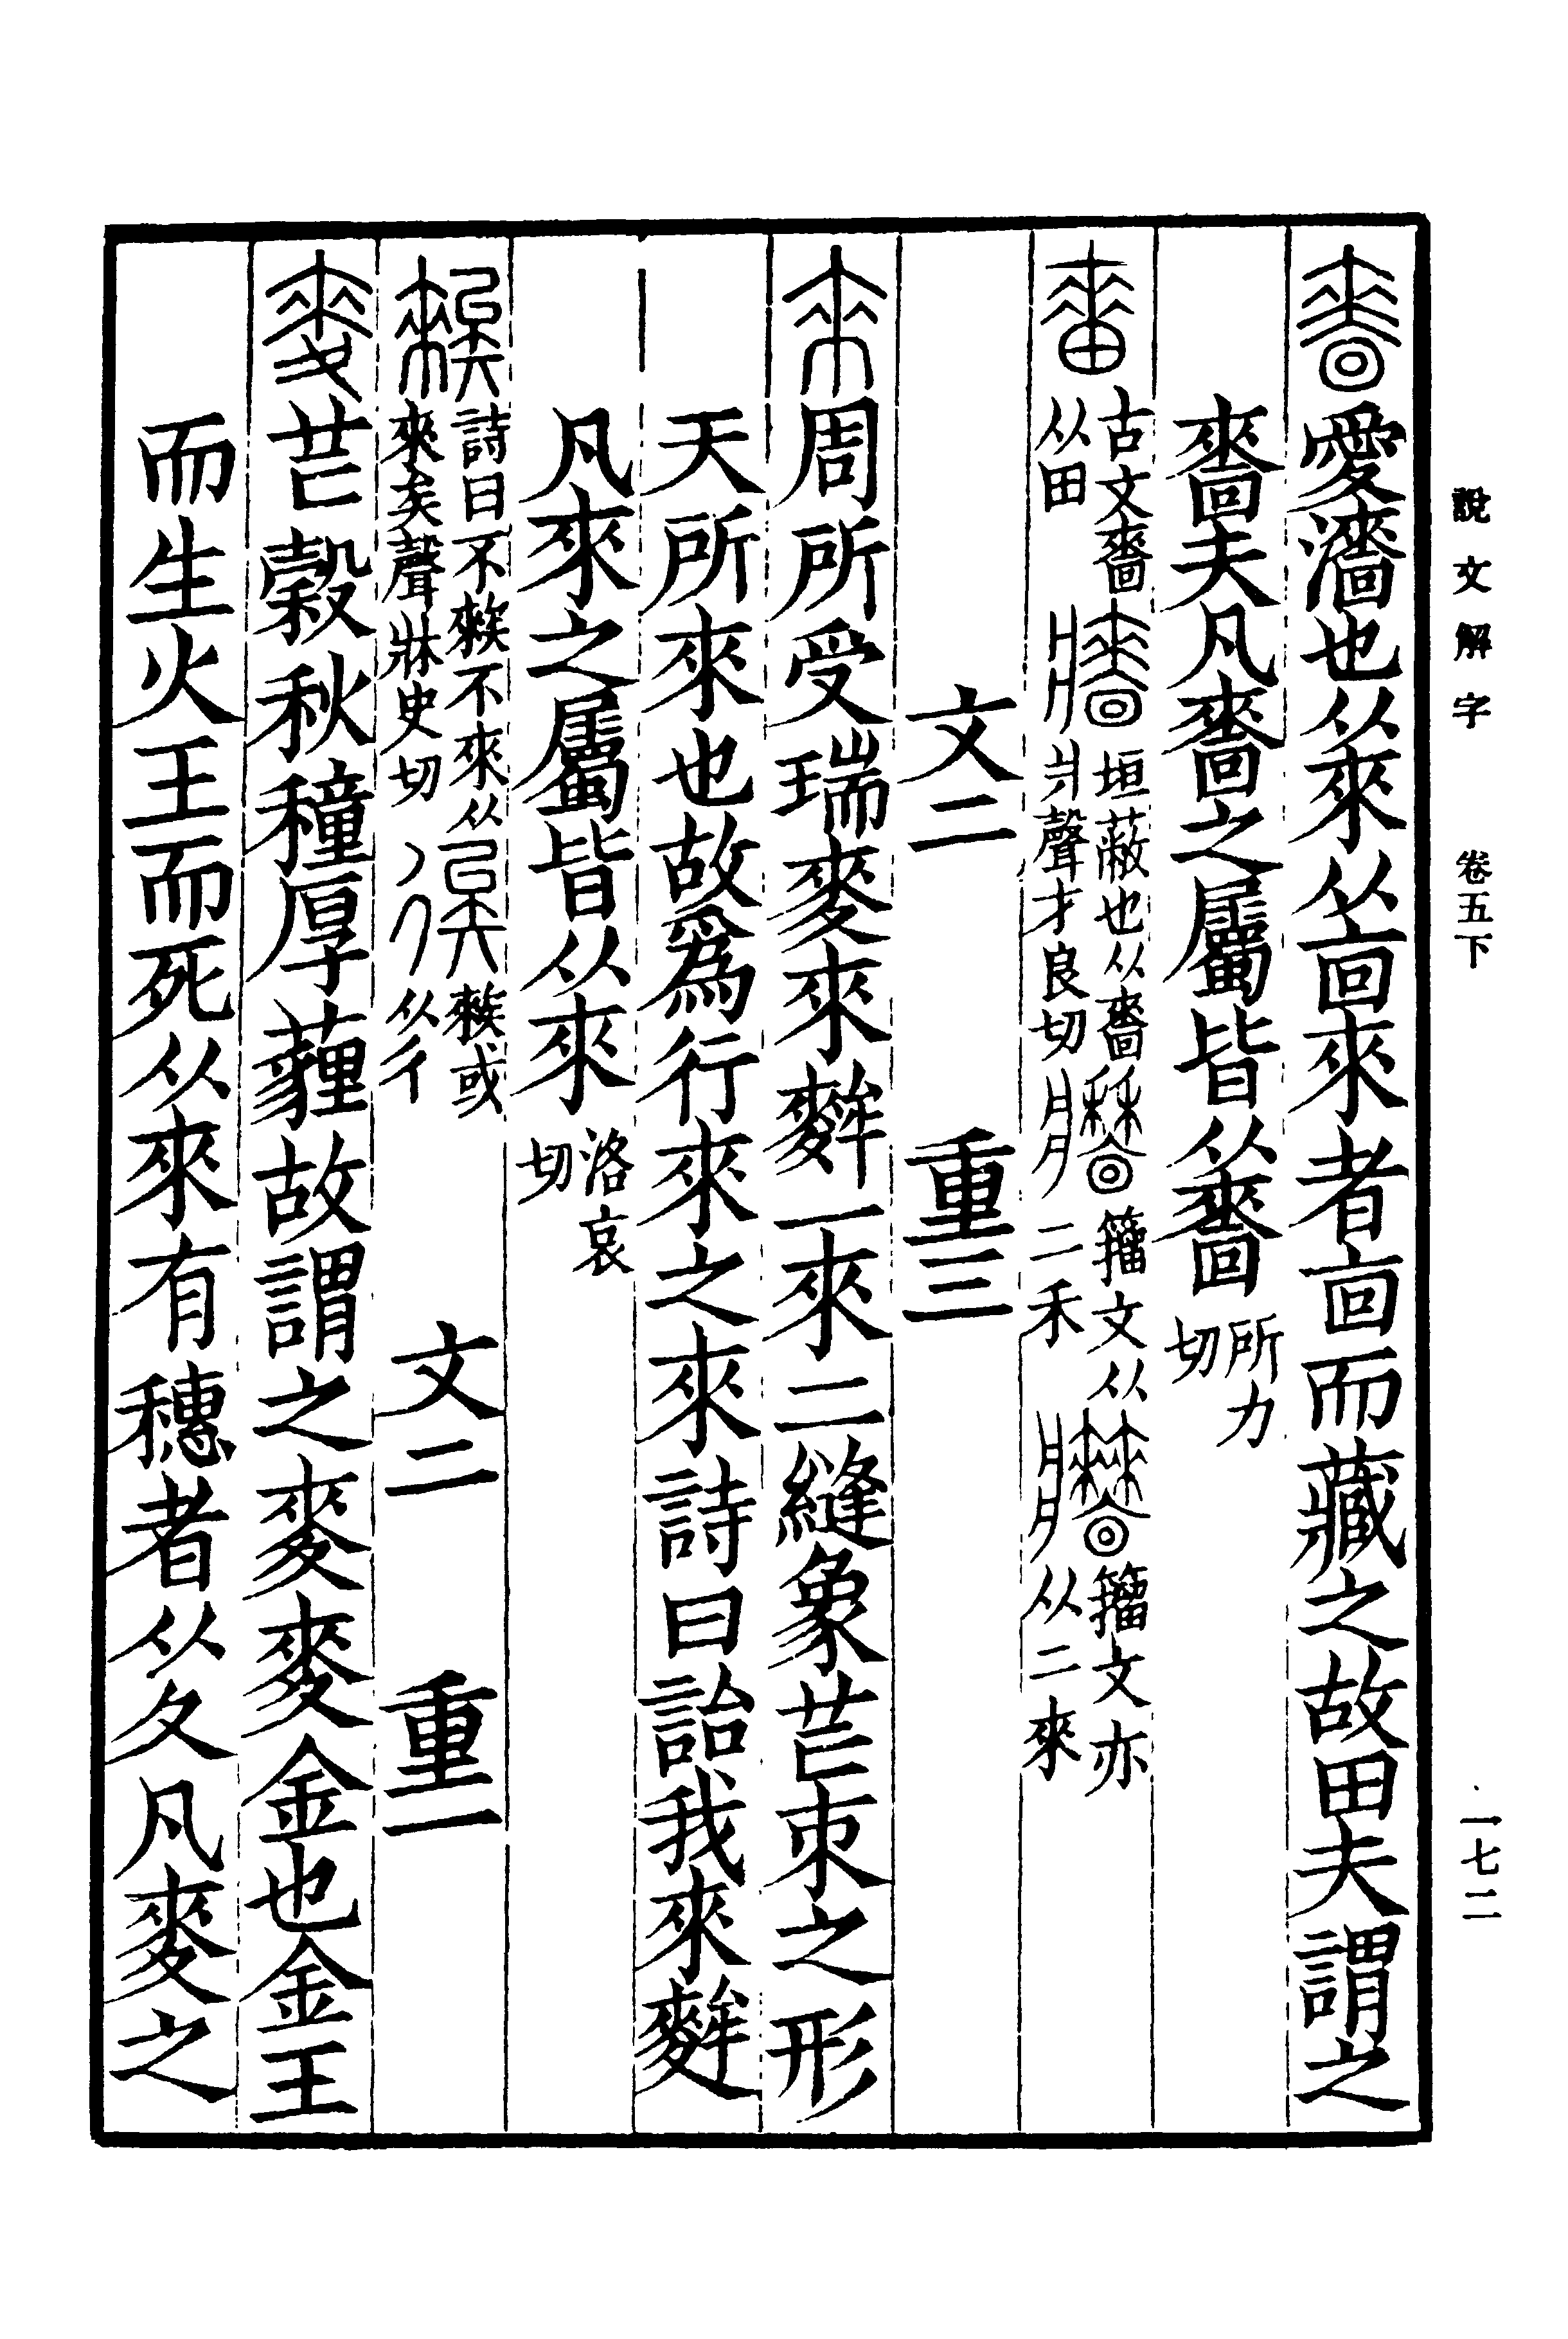 說文解字 卷五下 一七二
嗇愛濇也从來从㐭來者㐭而藏之故田夫謂之
嗇夫凡嗇之屬皆从嗇所力切
𤲸古文嗇从田牆垣蔽也从嗇爿聲才良切𤖧籀文从二禾𤖨籀文亦从二來
文二 重三
來周所受瑞麥來麰一來二縫象芒朿之形
天所來也故爲行來之來詩曰詒我來麰
凡來之屬皆从來洛哀切
𥏳詩曰不𥏳不來从來矣聲牀史切𢓪𥏳或从彳 文二 重一
麥芒穀秋穜厚薶故謂之麥麥金也金王
而生火王而死从來有穗者从夊凡麥之